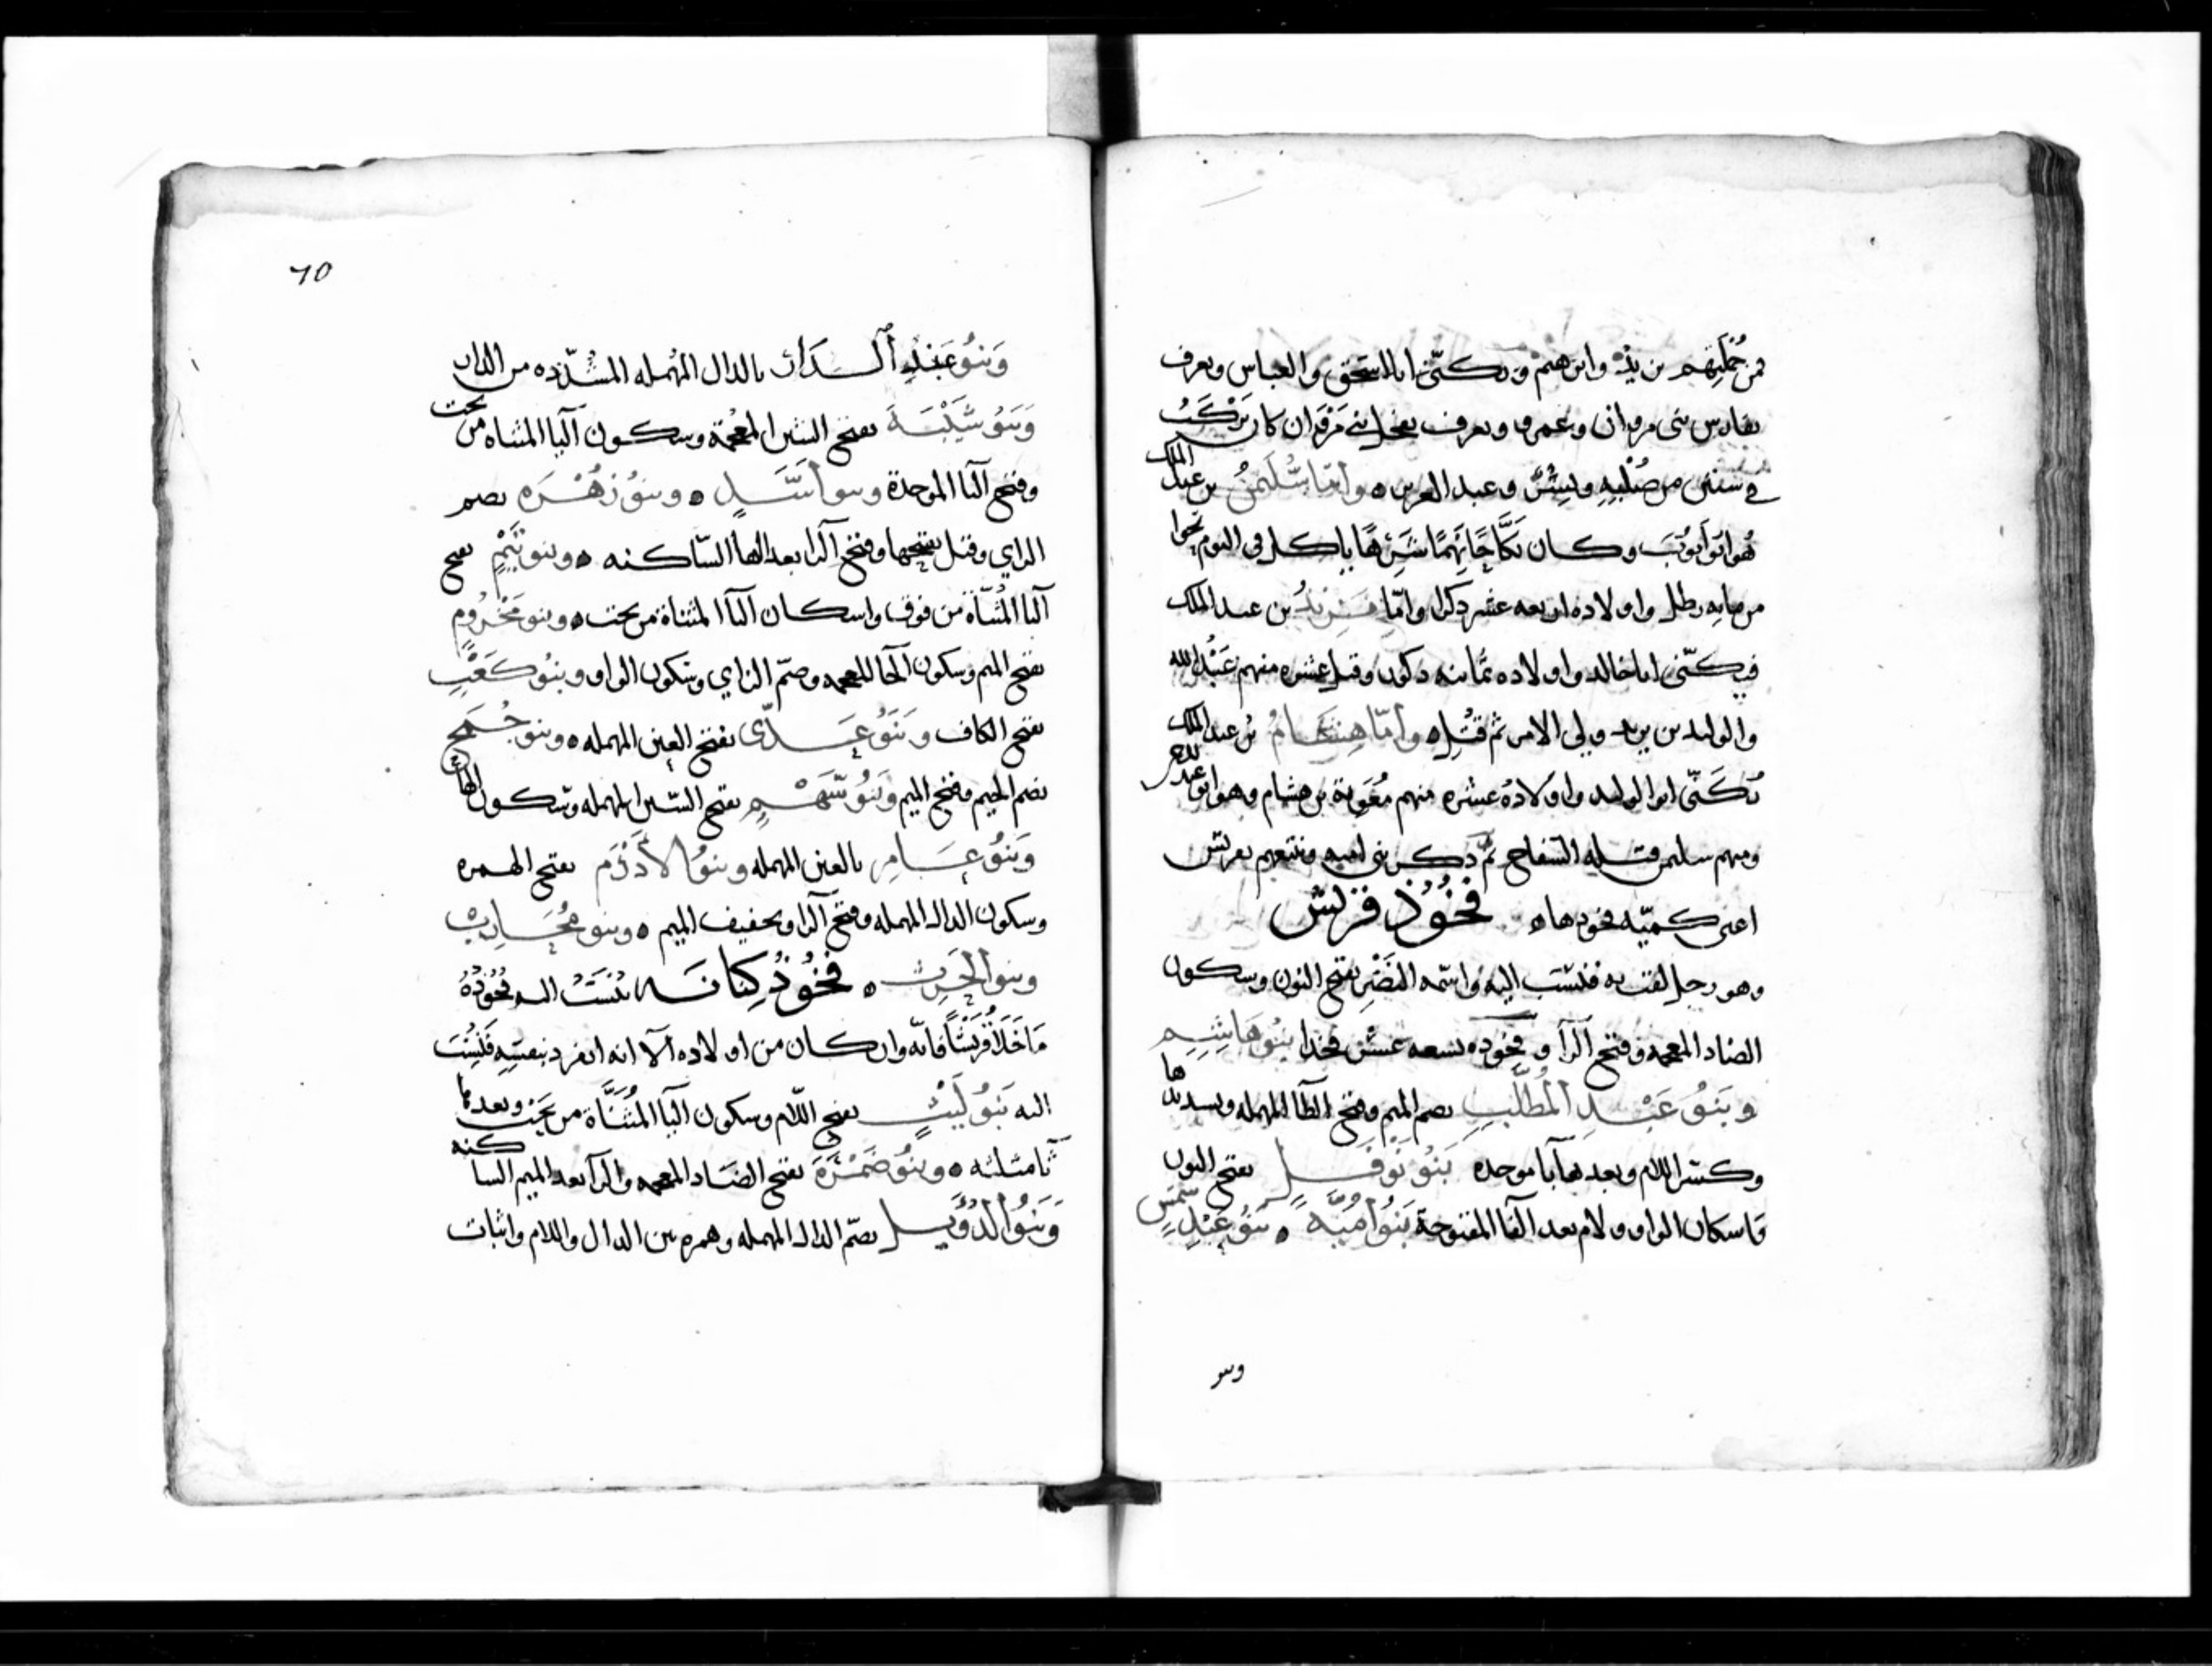 فمن جُملَتِهم يزيد وابرهيم ويكنّى ابا اسحق والعباس ويعرف
بفارس بنى مروان وعمر ويعرف بفحل بني مَرْوَان كان يَرْكَبُ
في ستين من صُلْبِهِ وبِشْر وعبد العزيز ٥ وأمّا سُلَيمنُ بن عبد الملك
هُو ابُو أيوُبَ وكان نكّاحًا نَهِمًا شَرِهًا ياكل في اليوم نحوا
من مايه رطل واولاده اربعه عشر ذكرا وامّا يَزِيدُ بن عبد الملك
فيكنّى ابا خالد واولاده ثمانيه ذكور وقيل عشره منهم عَبْدُ الله
والوليد بن يزيد ولي الامر ثم قُتِل ٥ وأمّا هِشَامُ بن عبد الملك
يُكَنّى ابو الوليد واولادُه عشره منهم مُعَوِية بن هشام وهو ابو عبد الرحمن
ومنهم سليمن قتله السّفاح ثمّ ذكر بني اميه ونتبعهم بقريش
اعنى كميّه فخودها ٥ فُخُوْذُ قُرَيْش
وهو رجل لقب به فنُسّب اليه واسْمه النَضْر بفتح النون وسكون
الضاد المعجمه وفتح الرآ وفخوده تسعه عشر فخذا بنُو هَاشِمٍ
وبَنُو عَبْدِ المُطّلِبِ بضم الميم وفتح الطآ المهمله وتشديدها
وكسر اللام وبعدها بآ موحده بَنُو نَوْفَلٍ بفتح النون
واسكان الواو ولام بعد الفآ المفتوحة بَنُو أُمَيَّه ٥ بَنُو عَبْدِ شَمْسٍ
وبنو
٦٥
وَبنُو عَبْدِ الدّار بالدال المهمله المشدّده من الدار
وَبَنُو شَيْبَةَ بفتح الشين المعجمة وسكون اليآ المثناه من تحت
وفتح البآ الموحدة وبنو أسَدٍ ٥ وبنوُ زُهْرَه بضم
الزاي وقيل بفتحها وفتح الرا بعد الهآ السّاكنه ٥ وبنو تَيْمٍ بفتح
التا المُثنّاة من فوق واسكان اليآ المثناة من تحت ٥ وبنو مَخْزُومٍ
بفتح الميم وسكون الخآ المعجمه وضمّ الزاي وسكون الواو وبنُو كَعْبٍ
بفتح الكاف وَبَنُو عَدِّى بفتح العين المهمله ٥ وبنو جُمَح
بضم الجيم وفتح الميم وَبنُو سَهْمٍ بفتح السّين المهمله وسكون الهآ
وَبَنوُ عَامِر بالعين المهمله وبنوُ الأَدْرَم بفتح الهمزه
وسكون الدال المهمله وفتح الرا وتخفيف الميم ٥ وبنو مُحَارِب
وبنو الحَرِث ٥ فُخُوْذُ كِنَانَه تُنْسَبُ اليه فُخُوْذُهُ
مَا خَلَا قُرَيْشًا فانّه وان كان من اولاده آلا انه انفرد بنفسِهِ فَنُسِبَت
اليه بَنوُ لَيْثٍ بفتح اللّام وسكون اليآ المُثَنَّاة من تحت وبعدها
ثآ مثلثه ٥ وبنُو ضَمْرَةَ بفتح الضاد المعجمه والرآ بعد الميم الساكنه
وَبَنُو الدُؤيل بضمّ الدال المهمله وهمزه بين الدال واللام واثبات